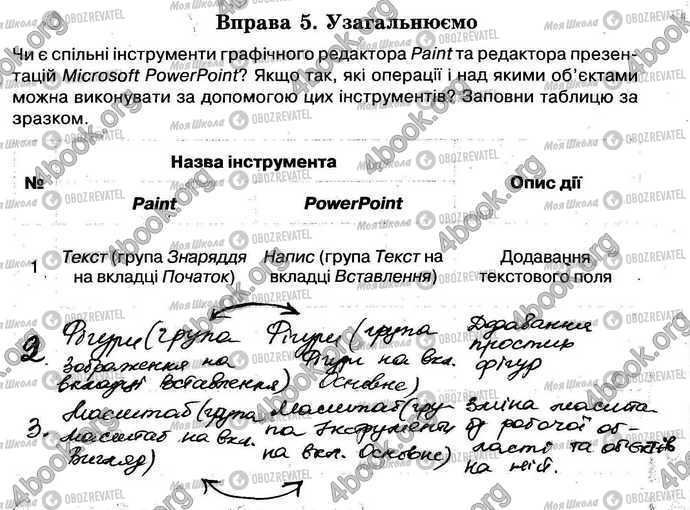 Вправа 5. Узагальнюємо
Чи є спільні інструменти графічного редактора Paint та редактора презен-
тацій Microsoft PowerPoint? Якщо так, які операції і над якими об'єктами
можна виконувати за допомогою цих інструментів? Заповни таблицю за
зразком.
№
Назва інструмента
Paint
PowerPoint
Опис дії
1
Текст (група Знаряддя
на вкладці Початок)
Напис (група Текст на
вкладці Вставлення)
Додавання
текстового поля
2
Фігури (група
зображення на
вкладці Вставлення)
Фігури (група
Фігури на вкл.
Основне)
Додавання
простих
фігур
3.
Масштаб (група
Масштаб на вкл.
Вигляд)
Масштаб (гру-
па Інструменти
на вкл. Основне)
Зміна масшта-
бу робочої об-
ласті та об'єктів
на ній.
Моя Школа OBOZREVATEL
4book.org